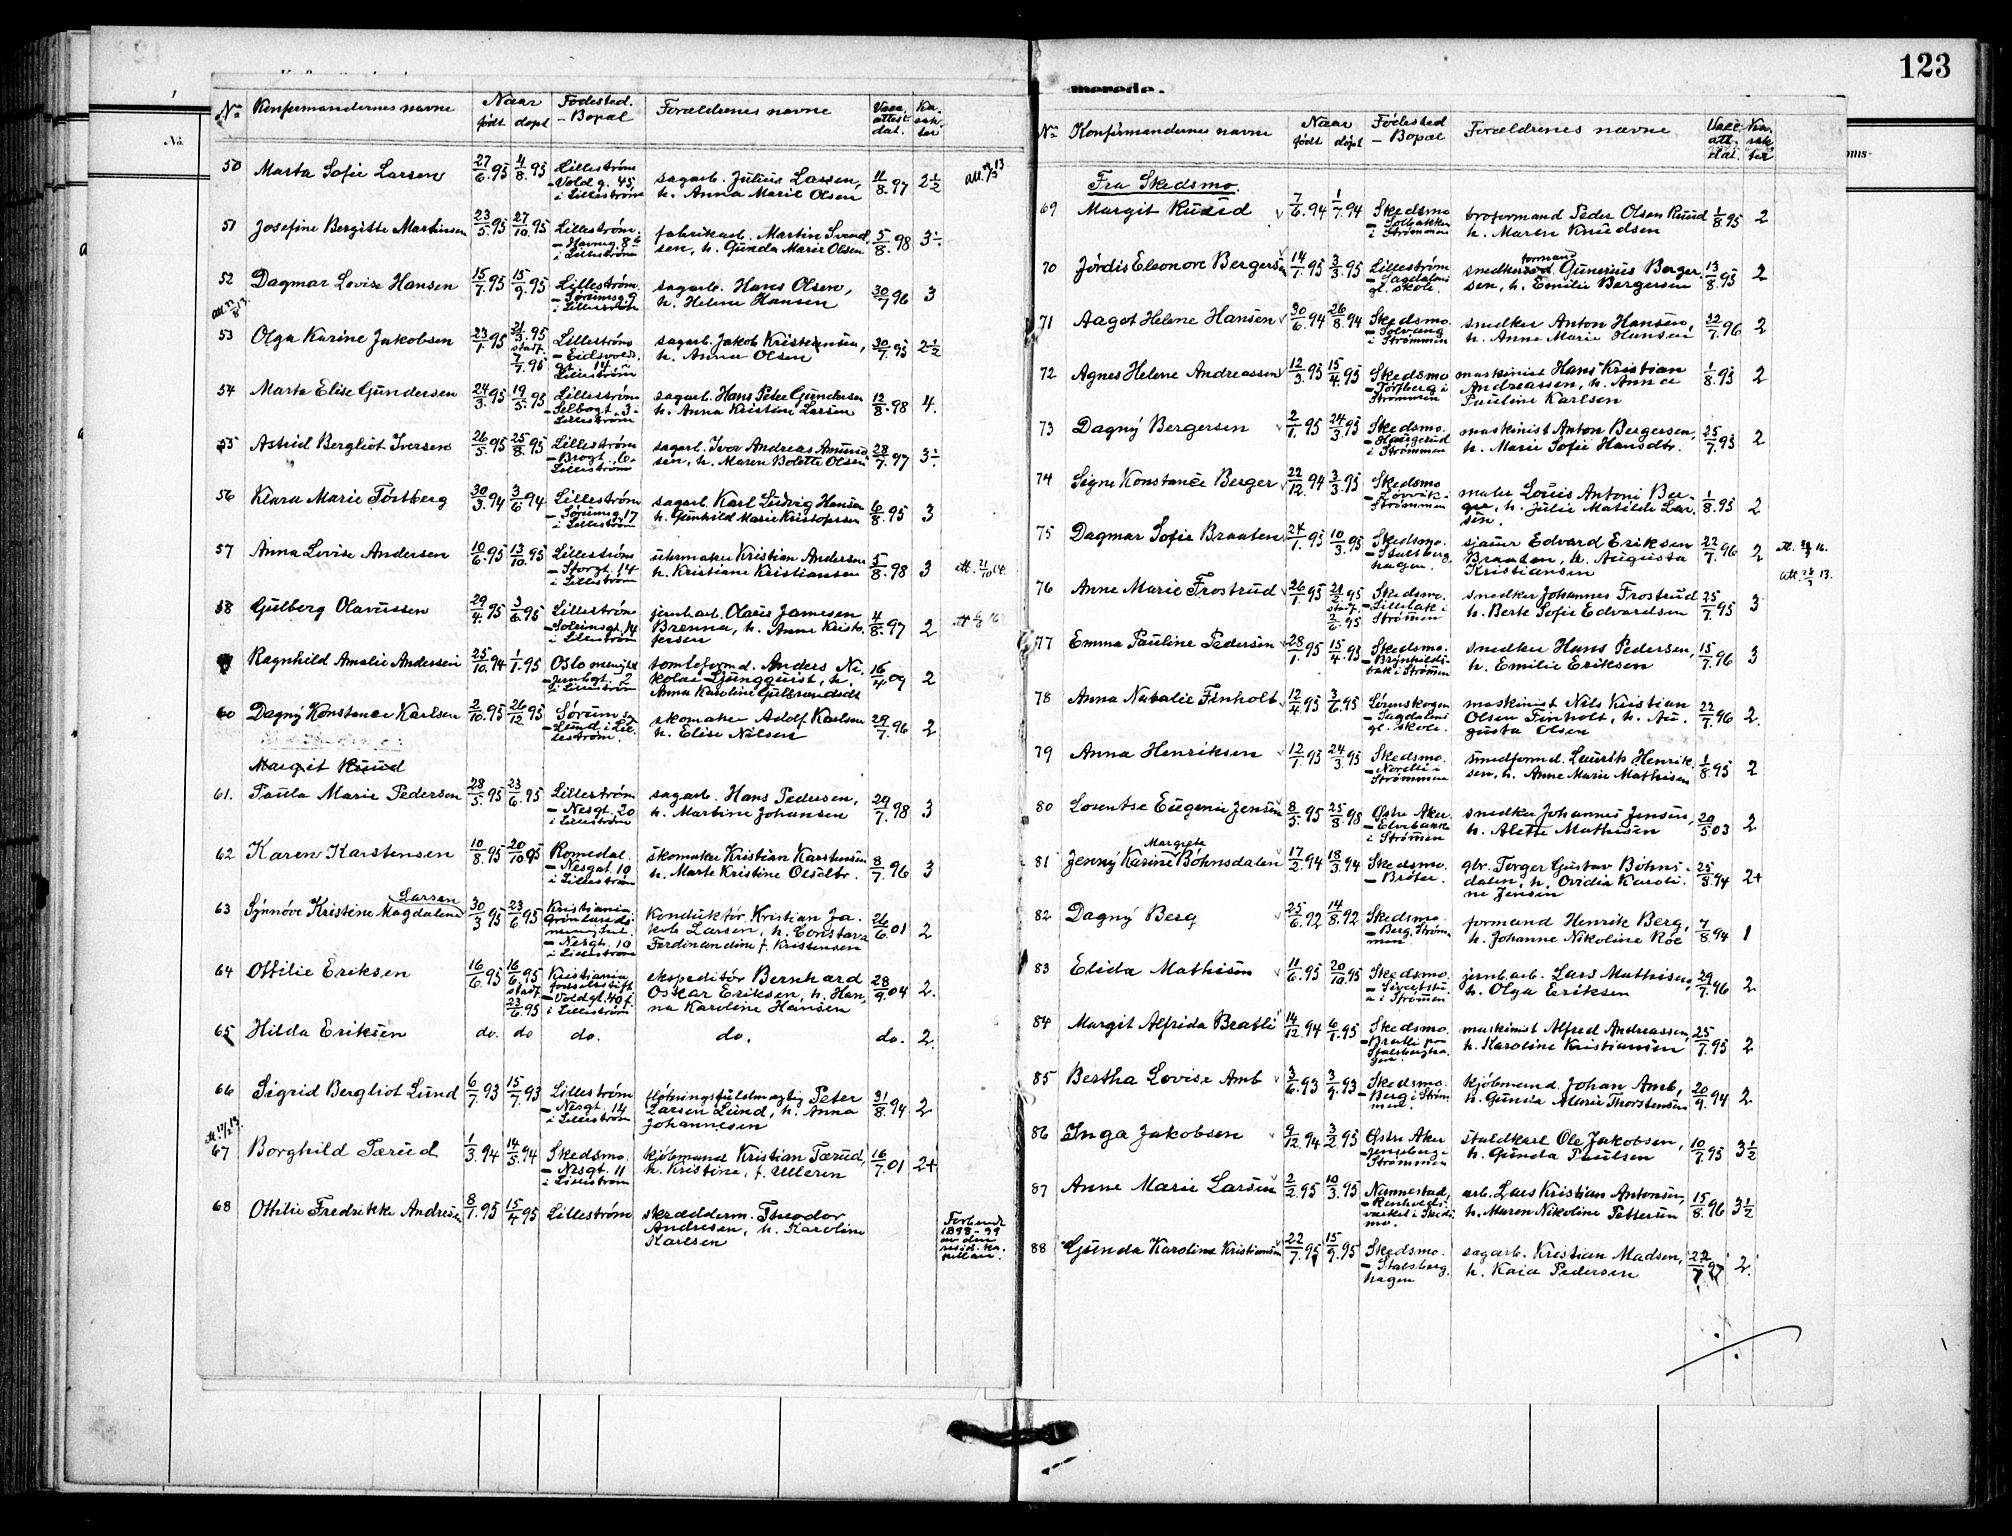 123
merede.
Nö.
Nº Konfirmandernes navne Naar født døpt Fødested. – Bopæl Forældrenes navne Vacc. attest dat. Karakter
50 Marta Sofie Larsen 27/6.95 4/8.95 Lillestrøm
– Voldg. 45, i Lillestrøm
sagarb. Julius Larsen,
h. Anna Marie Olsen 11/8.97 2½
51 Josefine Bergitte Martinsen 23/5.95 27/10.95 Lillestrøm.
i Lillestrøm
fabrikarb. Martin Svend,
sen, h. Gunda Marie Olsen 5/8.98 3÷
52 Dagmar Lovise Hansen 15/7.95 15/9.95 Lillestrøm
– Sørumsg. 9
i Lillestrøm
sagarb. Hans Olsen,
h. Helene Hansen 30/7.96 3
53 Olga Karine Jakobsen 23/1.95 21/3.95 stadf. 7/7.95 Lillestrøm
– Eidsvolds
gt. 14
Lillestrøm
sagarb. Jakob Kristiansen,
h. Anna Olsen 30/7.95 2½
54 Marte Elise Gundersen 24/3.95 19/5.95 Lillestrøm
– Selbogt. 3 –
Lillestrøm
sagarb. Hans Peter Gundersen
h. Anna Kristine Larsen 12/8.98 4.
55 Astrid Bergliot Iversen 26/5.95 25/8.95 Lillestrøm
– Brogt. 6 –
Lillestrøm
sagarb. Ivar Andreas Amund
sen, h. Maren Bolette Olsen 28/7.97 3÷
56 Klara Marie Tøsberg 30/3.94 3/6.94 Lillestrøm
– Sørumsg. 17
i Lillestrøm
sagarb. Karl Ludvig Hansen
h. Gunhild Marie Kristofersen 6/8.95 3
57 Anna Lovise Andersen 10/6.95 13/10.95 Lillestrøm
– Storgt. 14
i Lillestrøm
uhrmaker Kristian Andersen
h. Kristiane Kristiansen 5/8.98 3
58 Gulborg Olavussen 29/4.95 3/6.95 Lillestrøm
– Soleimsgt. 14
i Lillestrøm
jernbarb. Olaus Jamesen
Brenna, h. Anne Kristo
fersen 4/8.97 2
Ragnhild Amalie Andersen 25/10.94 1/1.95 Oslo menighet
– Jernbgt. 2
i Lillestrøm
tomteformd. Anders Ni
kolai Ljungquist, h.
Anna Karoline Gulbrandsdt. 16/4.09 2
60 Dagny Konstance Karlsen 2/10.95 26/12.95 Sørum
– Lund i Lil
lestrøm.
skomaker Adolf Karlsen
h. Elise Nilsen 29/7.96 2
Margit Ruud
61. Paula Marie Pedersen 28/5.95 23/6.95 Lillestrøm
– Nesgt. 20
i Lillestrøm
sagarb. Hans Pedersen,
h. Martine Johansen 29/7.98 3
62 Karen Karstensen 10/8.95 20/10.95 Romedal.
– Nesgt. 10
i Lillestrøm
skomaker Kristian Karstensen
h. Marte Kristine Olsdtr. 8/7.96 3
Larsen
63 Synnøve Kristine Magdalene 30/3.95 23/6.95 Kristiania
Grønlands
menighet.
– Nesgt. 10
i Lillestrøm
Konduktør Kristian Ja
kob Larsen, h. Constava
Ferdinandine f. Kristensen 26/6.01 2
64 Ottilie Eriksen 16/6.95 16/6.95 stadf. 23/6.95 Kristiania
fødselsstift.
– Voldgt. 40 f.
i Lillestrøm
ekspeditør Bernhard
Oskar Eriksen, h. Han,
na Karoline Hansen 28/9.04 2.
65 Hilda Eriksen do. do do. do. do. 2.
66 Sigrid Bergliot Lund 6/7.93 15/7.93 Lillestrøm
– Nesgt. 14
i Lillestrøm
fløtningsfuldmægtig Peter
Larsen Lund, h. Anna
Johannesen 31/8.94 2
67 Borghild Tærud 1/3.94 14/5.94 Skedsmo.
– Nesgt. 11
i Lillestrøm
kjøbmand Kristian Tærud,
h. Kristine, f. Ulleren 16/7.01 2+
68 Ottilie Fredrikke Andresen 8/1.95 15/4.95 Lillestrøm skrædderm. Theodor
Andresen, h. Karoline
Karlsen
Forbund
1898–99
av den
resid. ka,
pellan.
Nº Konfirmandernes navne Naar født døpt Fødested – Bopæl Forældrenes navne Vacc. att. dat. Karakter
Fra Skedsmo.
69 Margit Ruud 7/6.94 1/7.94 Skedsmo
– Solbakken
i Strømmen
broformand Peder Olsen Ruud
h. Maren Knudsen 1/8.95 2
70 Jørdis Eleonore Bergersen 14/1.95 3/3.95 Lillestrøm
– Sagdalens
gl. skole.
snedkerformand Gunerius Berger
sen, h. Emilie Bergersen 13/8.95 2
71 Aagot Helene Hansen 30/6.94 26/8.94 Skedsmo.
– Solvang
i Strømmen
snedker Anton Hansen,
h. Anne Marie Hansen 22/7.96 2
72 Agnes Helene Andreassen 12/3.95 15/4.95 Skedsmo
– Torsberg i
Strømmen
maskinist Hans Kristian
Andreassen, h. Anna
Pauline Karlsen 1/8.95 2
73 Dagny Bergersen 2/1.95 24/3.95 Skedsmo.
– Haugerud
i Strømmen
maskinist Anton Bergersen,
h. Marie Sofie Hansdtr. 25/7.95 2
74 Signe Konstance Berger 22/12.94 3/3.95 Skedsmo
– Løvvik i
Strømmen
maler Louis Antoni Ber-
ger, h. Julie Matilde Lar
sen. 1/8.95 2
75 Dagmar Sofie Braaten 24/1.95 10/3.95 Skedsmo.
– Stalsberg
hagen.
sjauer Edvard Eriksen
Braaten, h. Augusta
Kristiansen 22/7.96 2
76 Anne Marie Frostrud 26/1.95 24/2.95 stadf. 2/6.95 Skedsmo.
– Lillebak i
Strømmen
snedker Johannes Frostrud
h. Berte Sofie Edvardsen 25/7.95 3
77 Emma Pauline Pedersen 28/1.95 15/4.95 Skedsmo.
– Brynhilds-
bak i Strømmen
snedker Hans Pedersen,
h. Emilie Eriksen 15/7.96 3
78 Anna Natalie Finholt 12/4.95 3/6.95 Lørenskogen
– Sagdalens
gl. skole.
maskinist Nils Kristian
Olsen Finholt, h. Au.
gusta Olsen 22/7.96 2.
79 Anna Henriksen 12/1.95 24/3.95 Skedsmo.
– Nordli i
Strømmen
smedformd. Laurits Henrik
sen, h. Anne Marie Mathisen 1/8.95 2
80 Lorentse Eugenie Jensen 8/5.95 25/8.95 Østre Aker
– Elvebakke
i Strømmen
snedker Johannes Jensen,
h. Alette Mathisen 20/5.03 2
Margrete
81 Jenny Karine Bøhnsdalen 17/2.94 18/3.94 Skedsmo.
– Brøter.
gbr. Torger Gustav Bøhns-
dalen, h. Ovidia Karoli
ne Jensen 25/8.94 2+
82 Dagny Berg 25/6.92 14/8.92 Skedsmo.
– Berg, Strøm
men.
formand Henrik Berg,
h. Johanne Nikoline Roe 7/8.94 1
83 Elida Mathisen 11/6.95 20/10.95 Skedsmo.
– Sivertstu
a i Strømmen
jernb.arb. Lars Mathisen,
h. Olga Eriksen 29/7.96 2
84 Margit Alfrida Bratli 14/12.94 6/1.95 Skedsmo.
– Bratli paa
Stalsbergha
gen.
maskinist Alfred Andreassen,
h. Karoline Kristiansen 25/7.95 2
85 Bertha Lovise Amb 3/6.93 3/9.93 Skedsmo.
– Berg i Strøm
men.
kjøbmand. Johan Amb,
h. Gunda Marie Thorstensen 20/9.94 2
86 Inga Jakobsen 9/12.94 3/2.95 Østre Aker
Strømmen
staldkarl Ole Jakobsen,
h. Gunda Paulsen 10/7.95 3½
87 Anne Marie Larsen 2/2.95 10/3.95 Nannestad,
mo.
arb. Lars Kristian Antonsen,
h. Maren Nikoline Pettersen 15/8.96 3½
88 Gunda Karoline Kristiansen 22/7.95 15/9.95 Skedsmo.
– Stalsberg
hagen
sagarb. Kristian Madsen,
h. Kaia Pedersen 22/7.97 2.